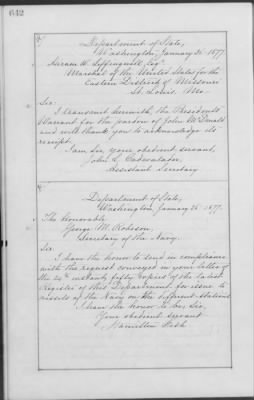 642
Department of State,
Washington, January 26 1877.
Hiram W. Leffingwell, Esqr
Marshal of the United States for the
Eastern District of Missouri
St. Louis, Mo.
Sir:
I transmit herewith, the President's
Warrant for the pardon of John McDonald
and will thank you to acknowledge its
receipt.
I am, Sir, your obedient servant,
John L. Cadwalader,
Assistant Secretary
Department of State,
Washington, January 26 1877.
The Honorable
George M. Robeson,
Secretary of the Navy.
Sir:
I have the honor to send in compliance
with the request conveyed in your letter of
the 24th instant, fifty copies of the latest
Register of this Department for issue to
vessels of the Navy on the different stations
I have the honor to be, Sir,
Your obedient servant
Hamilton Fish